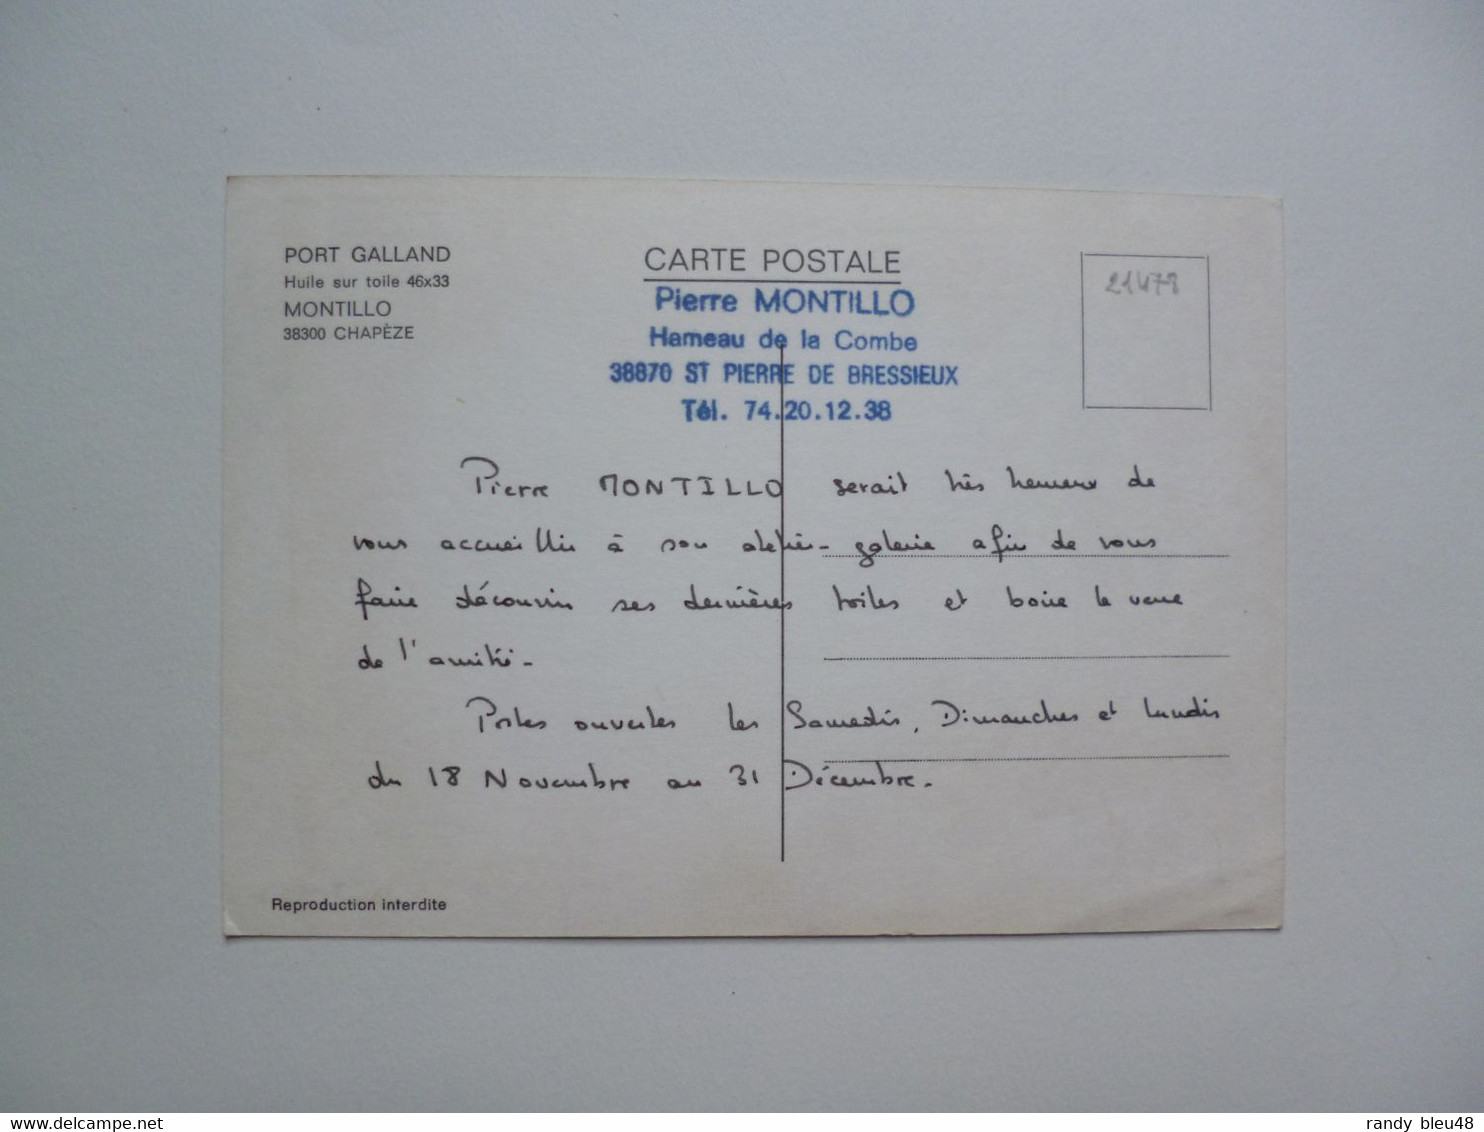 PORT GALLAND
Huile sur toile 46x33
MONTILLO
38300 CHAPÈZE
CARTE POSTALE
Pierre MONTILLO
Hameau de la Combe
38870 ST PIERRE DE BRESSIEUX
Tél. 74.20.12.38
21478
Pierre MONTILLO serait très heureux de
vous accueillir à son atelier-galerie afin de vous
faire découvrir ses dernières toiles et boire le verre
de l'amitié.
Portes ouvertes les Samedis, Dimanches et lundis
du 18 Novembre au 31 Décembre.
Reproduction interdite
delcampe.net
randy_bleu48